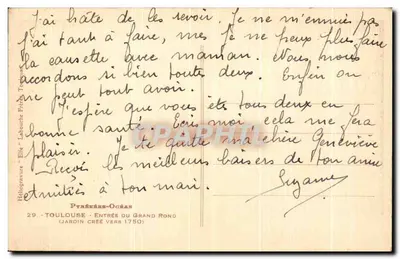 J'ai hâte de les revoir. Je ne m'ennuie pas
j'ai tant à faire, mes je ne peux plus faire
la causette avec maman. Nous nous
accordons si bien toutes deux. Enfin on
ne peut tout avoir.
J'espère que vous ête tous deux en
bonne santé. Ecris moi cela me fera
plaisir. Je te quitte ma chère Geneviève
Reçois les meilleurs baisers de ton amie
amitiés à ton mari.
Suzanne
PYRÉNÉES-OCÉAN
29. - TOULOUSE - ENTRÉE DU GRAND ROND
(JARDIN CRÉÉ VERS 1750)
Héliogravure "Elfe" Labouche Frères